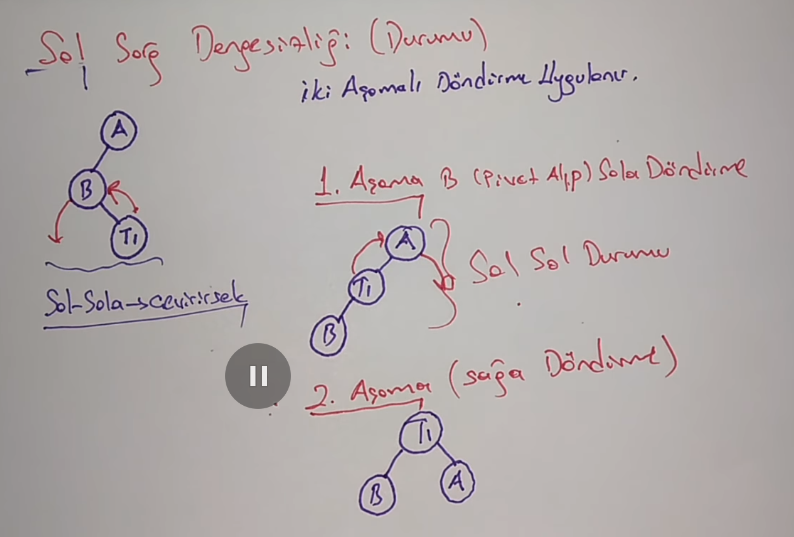 Sol Sağ Dengesizliği (Durumu)
iki Aşamalı Döndürme Uygulanır.
A
B
T1
Sol-Sola→çevirirsek
1. Aşama B (Pivot Alıp) Sola Döndürme
A
T1
B
Sol Sol Durumu
2. Aşama (sağa Döndürme)
T1
B
A